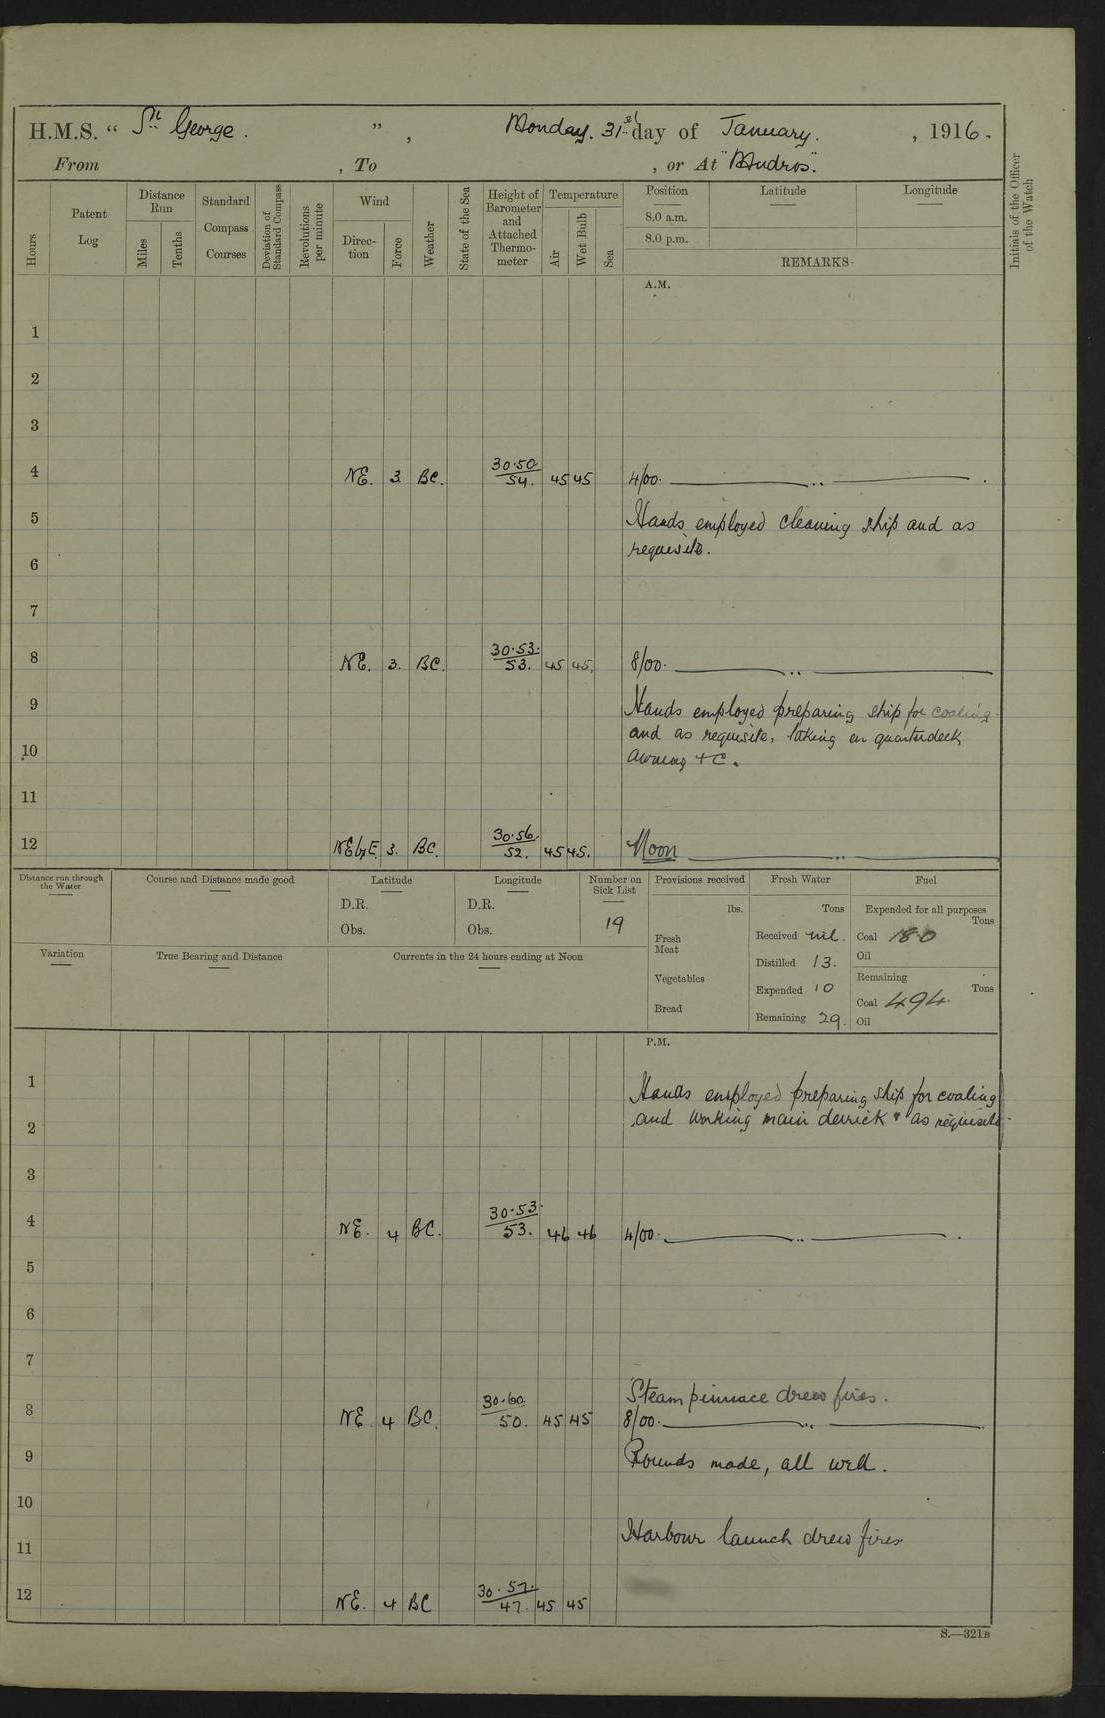 H.M.S. " St George. ", Monday. 31st day of January. , 1916.
From , To , or At "Mudros".
Hours
Patent Log
Distance Run
Miles
Tenths
Standard Compass Courses
Deviation of Standard Compass
Revolutions per minute
Wind
Direction
Force
Weather
State of the Sea
Height of Barometer and Attached Thermometer
Temperature
Air
Wet Bulb
Sea
Position
8.0 a.m.
8.0 p.m.
Latitude
Longitude
REMARKS.
Initials of the Officer of the Watch
A.M.
1
2
3
4 NE. 3 BC. 30.50 54. 45 45 4/00.
5 Hands employed cleaning ship and as
requisite.
6
7
8 NE. 3. BC. 30.53. 53. 45 45. 8/00.
9 Hands employed preparing ship for coaling
and as requisite, taking in quarterdeck
10 awning +c.
11
12 NEbyE 3. BC. 30.56. 52. 45 45. Noon
Distance run through the Water
Course and Distance made good
Latitude
D.R.
Obs.
Longitude
D.R.
Obs.
Number on Sick List
19
Provisions received
lbs.
Fresh Meat
Vegetables
Bread
Fresh Water
Tons
Received nil.
Distilled 13.
Expended 10
Remaining 29.
Fuel
Expended for all purposes
Tons
Coal 18.0
Oil
Remaining
Tons
Coal 494.
Oil
Variation
True Bearing and Distance
Currents in the 24 hours ending at Noon
P.M.
1 Hands employed preparing ship for coaling
2 and working main derrick & as requisite.
3
4 NE. 4 BC. 30.53. 53. 46 46 4/00.
5
6
7
Steam pinnace drew fires.
8 NE 4 BC. 30.60. 50. 45 45 8/00.
9 Rounds made, all well.
10
11 Harbour launch drew fires
12 NE. 4 BC 30.57. 47. 45 45
S.—321B